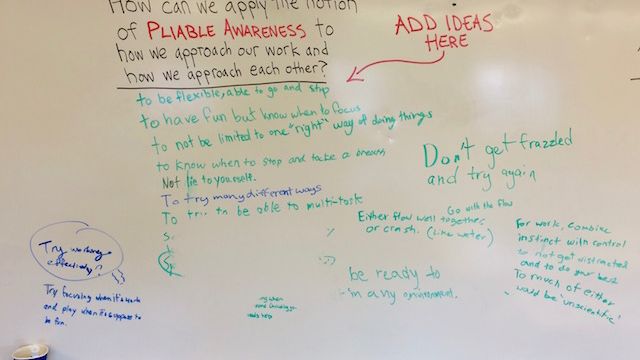 How can we apply the notion
of PLIABLE AWARENESS to
how we approach our work and
how we approach each other?
ADD IDEAS
HERE
to be flexible, able to go and stop
to have fun but know when to focus
to not be limited to one "right" way of doing things
to know when to stop and take a
Not lie to yourself.
To try many different ways
To try to be able to multi-task
Don't get frazzled
and try again
Go with the flow
Either flow well together
or crash. (Like water)
For work, combine
instinct with control
to not get distracted
and to do your best
To much of either
would be "unscientific"
be ready to
in any environment.
Try working
effectively?
Try focusing when it's
and play when it's suppose to
be fun.
when
needs help